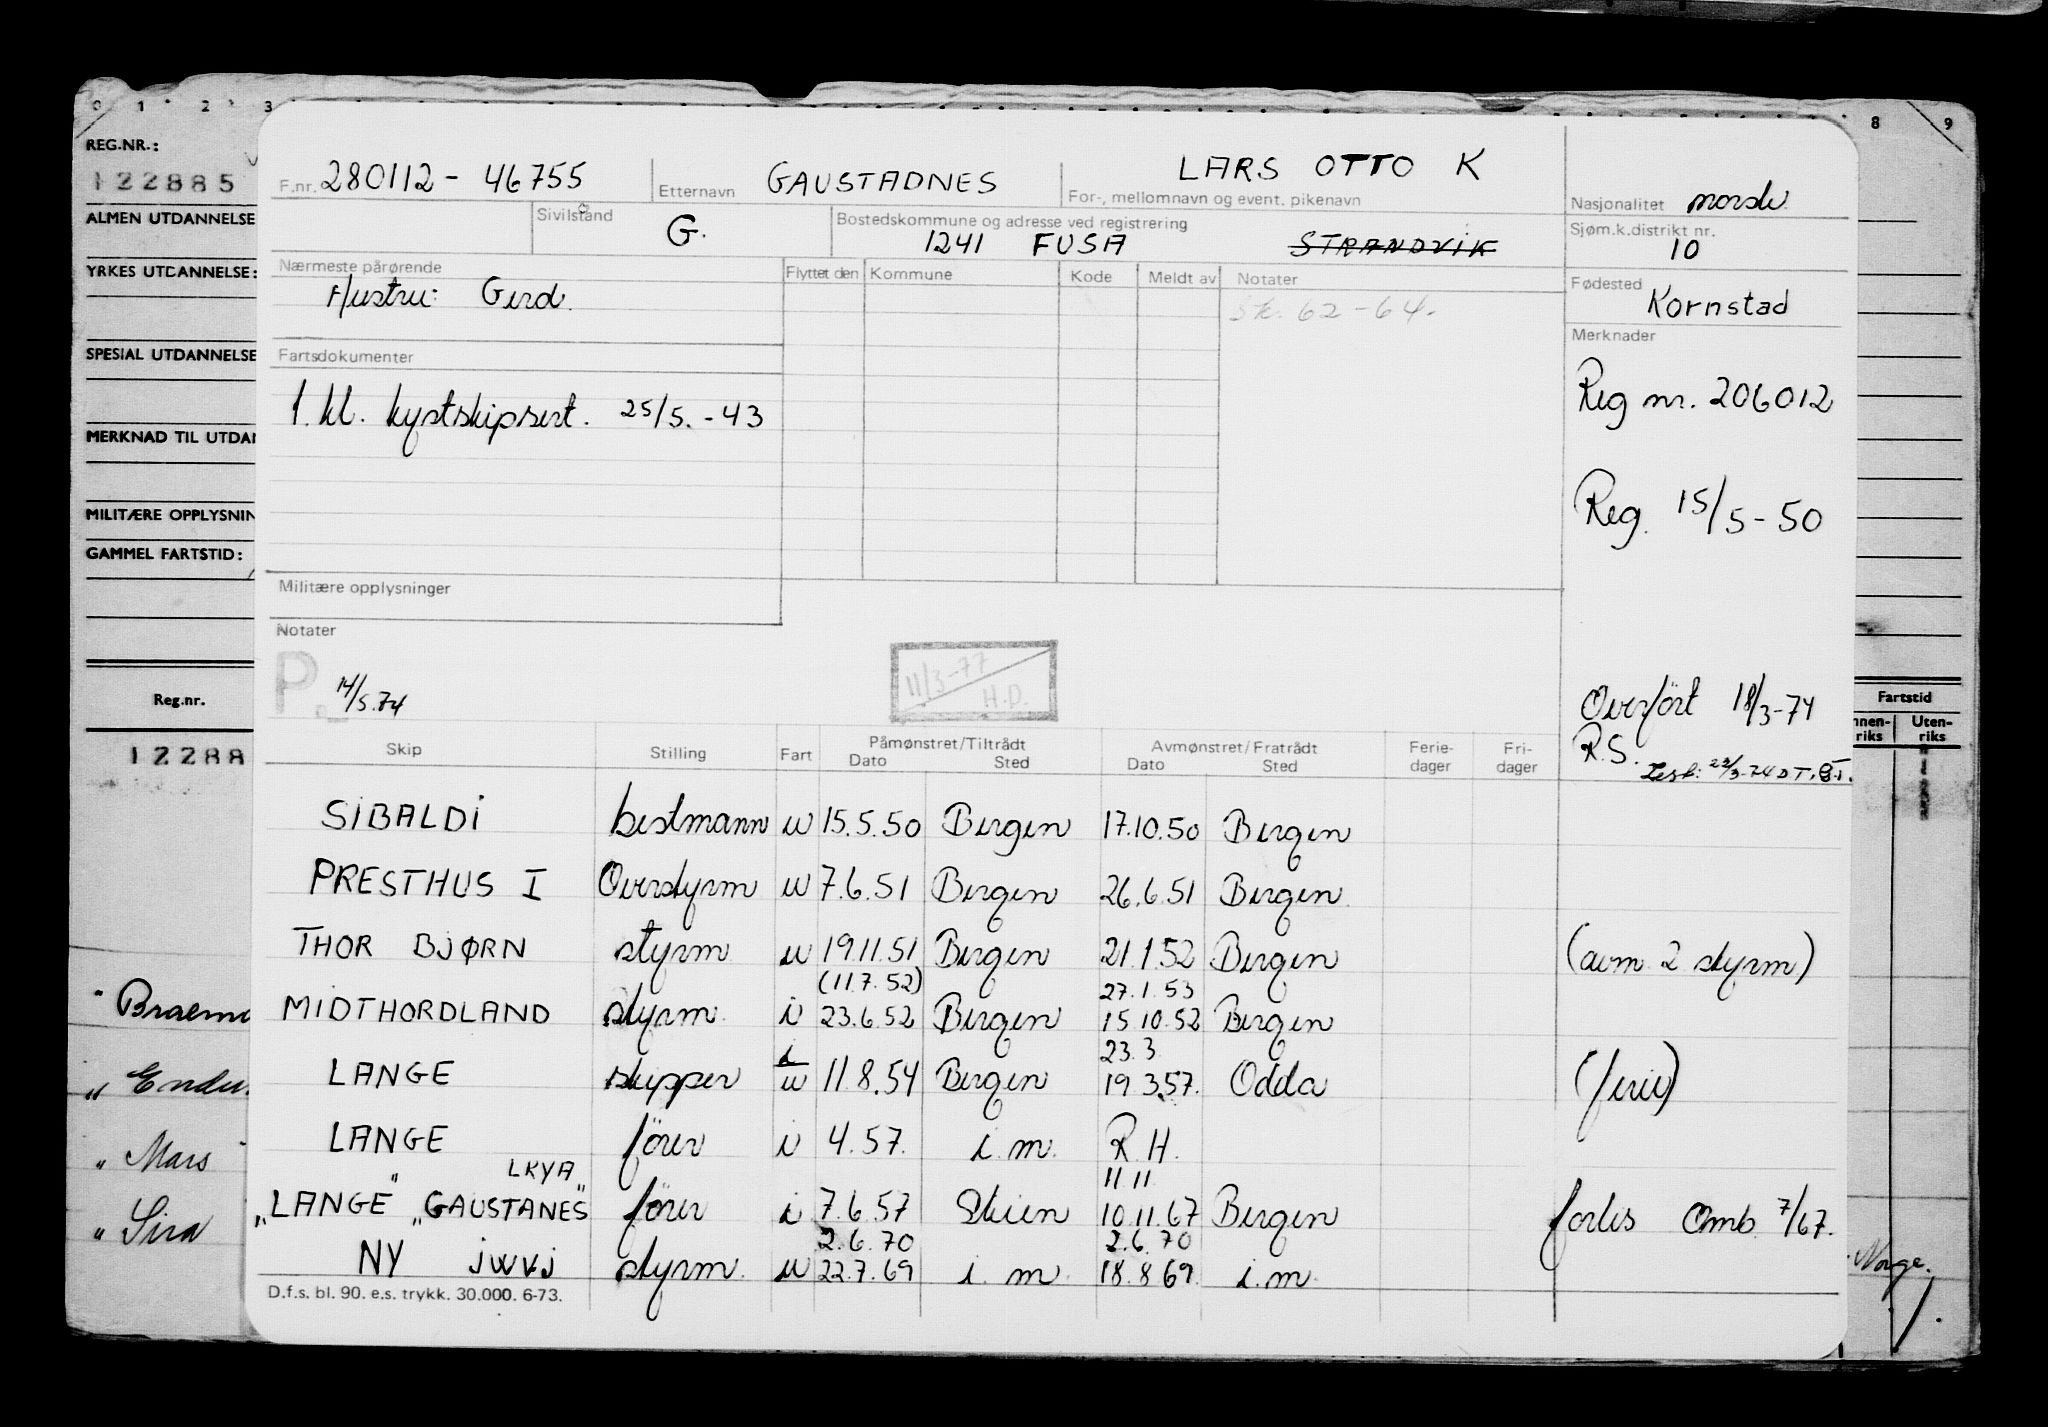 0 1 2 3 8 9
REG.NR.:
122885
ALMEN UTDANNELSE
YRKES UTDANNELSE:
SPESIAL UTDANNELSE
MERKNAD TIL UTDAN
MILITÆRE OPPLYSNIN
GAMMEL FARTSTID:
Reg.nr.
12288
" Mars
" Sira
F.nr. 280112 - 46755
Etternavn GAUSTADNES
LARS OTTO K
For-, mellomnavn og event. pikenavn
Nasjonalitet norsk
Sivilstand G.
Bostedskommune og adresse ved registrering
1241 FUSA STRANDVIK
Sjøm.k.distrikt nr.
10
Nærmeste pårørende
Hustru: Gerd.
Flyttet den Kommune Kode Meldt av Notater
Sk. 62-64.
Fødested
Kornstad
Merknader
Fartsdokumenter
1. kl. kystskipsert. 25/5.-43
Reg nr. 206012
Reg. 15/5-50
Militære opplysninger
Notater
P. 14/5.74
11/3-77
H.D.
Overført 18/3-74
R.S.
Fartstid
nnen-riks Uten-riks
Skip Stilling Fart Påmønstret/Tiltrådt Avmønstret/Fratrådt Ferie-dager Fri-dager
Dato Sted Dato Sted
SIBALDI bestmann u 15.5.50 Bergen 17.10.50 Bergen
PRESTHUS I Overstyrm u 7.6.51 Bergen 26.6.51 Bergen
THOR BJØRN styrm u 19.11.51 Bergen 21.1.52 Bergen (avm 2 styrm)
(11.7.52) 27.1.53
MIDTHORDLAND styrm i 23.6.52 Bergen 15.10.52 Bergen
23.3
LANGE skipper i/u 11.8.54 Bergen 19.3.57. Odda (ferie)
LANGE fører i 4.57. i.m. R.H.
LKYA 11.11
"LANGE" "GAUSTANES" fører i 7.6.57 Skien 10.11.67 Bergen forlis Omb. 7/67.
2.6.70 2.6.70
NY jwvj styrm. u 22.7.69 i.m. 18.8.69 i.m.
D.f.s. bl. 90. e.s. trykk. 30.000. 6-73.
Norge.